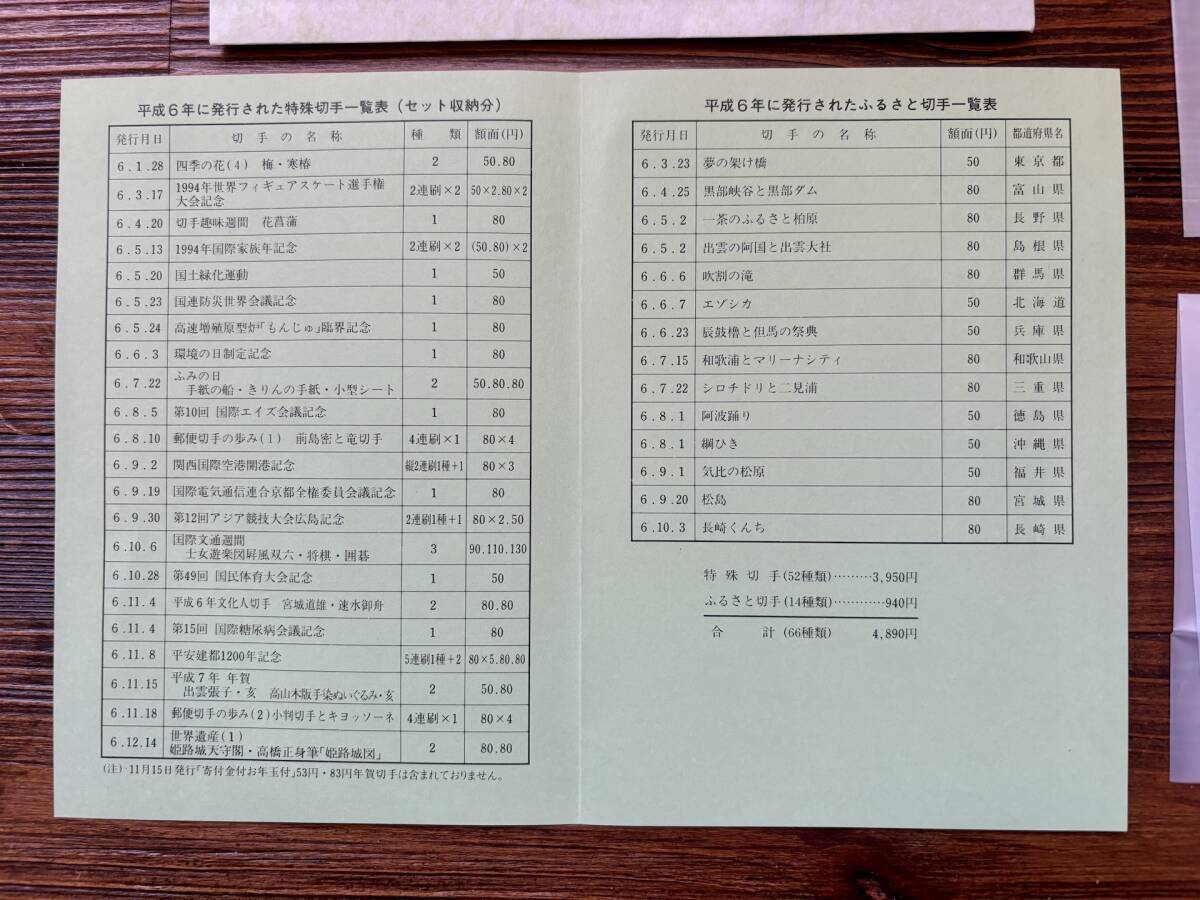 平成6年に発行された特殊切手一覧表(セット収納分)
発行月日 切手の名称 種類 額面(円)
6.1.28 四季の花(4) 梅・寒椿 2 50.80
6.3.17 1994年世界フィギュアスケート選手権大会記念 2連刷×2 50×2.80×2
6.4.20 切手趣味週間 花菖蒲 1 80
6.5.13 1994年国際家族年記念 2連刷×2 (50.80)×2
6.5.20 国土緑化運動 1 50
6.5.23 国連防災世界会議記念 1 80
6.5.24 高速増殖原型炉「もんじゅ」臨界記念 1 80
6.6.3 環境の日制定記念 1 80
6.7.22 ふみの日
手紙の船・きりんの手紙・小型シート 2 50.80.80
6.8.5 第10回 国際エイズ会議記念 1 80
6.8.10 郵便切手の歩み(1) 前島密と竜切手 4連刷×1 80×4
6.9.2 関西国際空港開港記念 縦2連刷1種+1 80×3
6.9.19 国際電気通信連合京都全権委員会議記念 1 80
6.9.30 第12回アジア競技大会広島記念 2連刷1種+1 80×2.50
6.10.6 国際文通週間
士女遊楽図屛風双六・将棋・囲碁 3 90.110.130
6.10.28 第49回 国民体育大会記念 1 50
6.11.4 平成6年文化人切手 宮城道雄・速水御舟 2 80.80
6.11.4 第15回 国際糖尿病会議記念 1 80
6.11.8 平安建都1200年記念 5連刷1種+2 80×5.80.80
6.11.15 平成7年 年賀
出雲張子・亥 高山木版手染ぬいぐるみ・亥 2 50.80
6.11.18 郵便切手の歩み(2)小判切手とキヨッソーネ 4連刷×1 80×4
6.12.14 世界遺産(1)
姫路城天守閣・高橋正身筆「姫路城図」 2 80.80
(注)・11月15日発行「寄付金付お年玉付」53円・83円年賀切手は含まれておりません。
平成6年に発行されたふるさと切手一覧表
発行月日 切手の名称 額面(円) 都道府県名
6.3.23 夢の架け橋 50 東京都
6.4.25 黒部峡谷と黒部ダム 80 富山県
6.5.2 一茶のふるさと柏原 80 長野県
6.5.2 出雲の阿国と出雲大社 80 島根県
6.6.6 吹割の滝 80 群馬県
6.6.7 エゾシカ 50 北海道
6.6.23 辰鼓櫓と但馬の祭典 50 兵庫県
6.7.15 和歌浦とマリーナシティ 80 和歌山県
6.7.22 シロチドリと二見浦 80 三重県
6.8.1 阿波踊り 50 徳島県
6.8.1 綱ひき 50 沖縄県
6.9.1 気比の松原 50 福井県
6.9.20 松島 80 宮城県
6.10.3 長崎くんち 80 長崎県
特殊切手(52種類)………3,950円
ふるさと切手(14種類)…………940円
合計(66種類) 4,890円